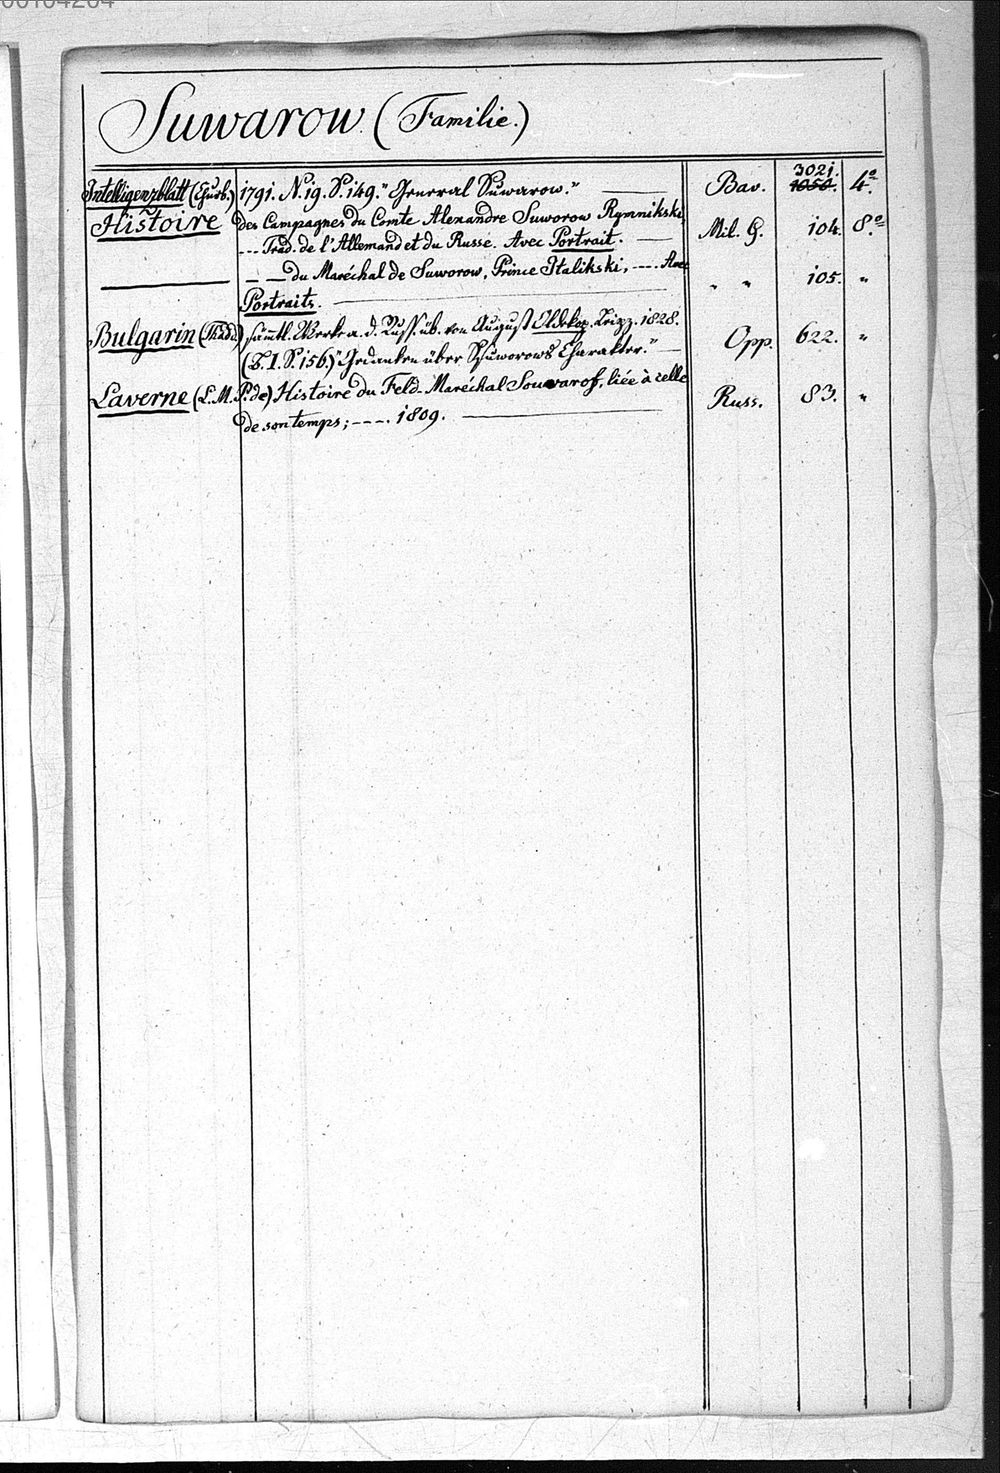 Suwarow. (Familie.)
Intelligenzblatt (Churb.) 1791. N. 19. S. 149. "General Suwarow." Bav. 3021. 1050. 4º
Histoire des Campagnes du Comte Alexandre Suworow Rymnikski
--- Trad. de l'Allemand et du Russe. Avec Portrait. Mil. G. 104. 8º
— — du Maréchal de Suworow, Prince Italikski, ---- Avec " " 105. "
Portraits.
Bulgarin (Thadd.) sämtl. Werke a. d. Russ. üb. von August Oldekop. Leipz. 1828.
(B. I. S. 156.) "Gedanken über Suworows Charakter." Opp. 622. "
Laverne (L. M. P. de) Histoire du Feld-Maréchal Souwarof, liée à celle
de son temps; ---- 1809. Russ. 83. "